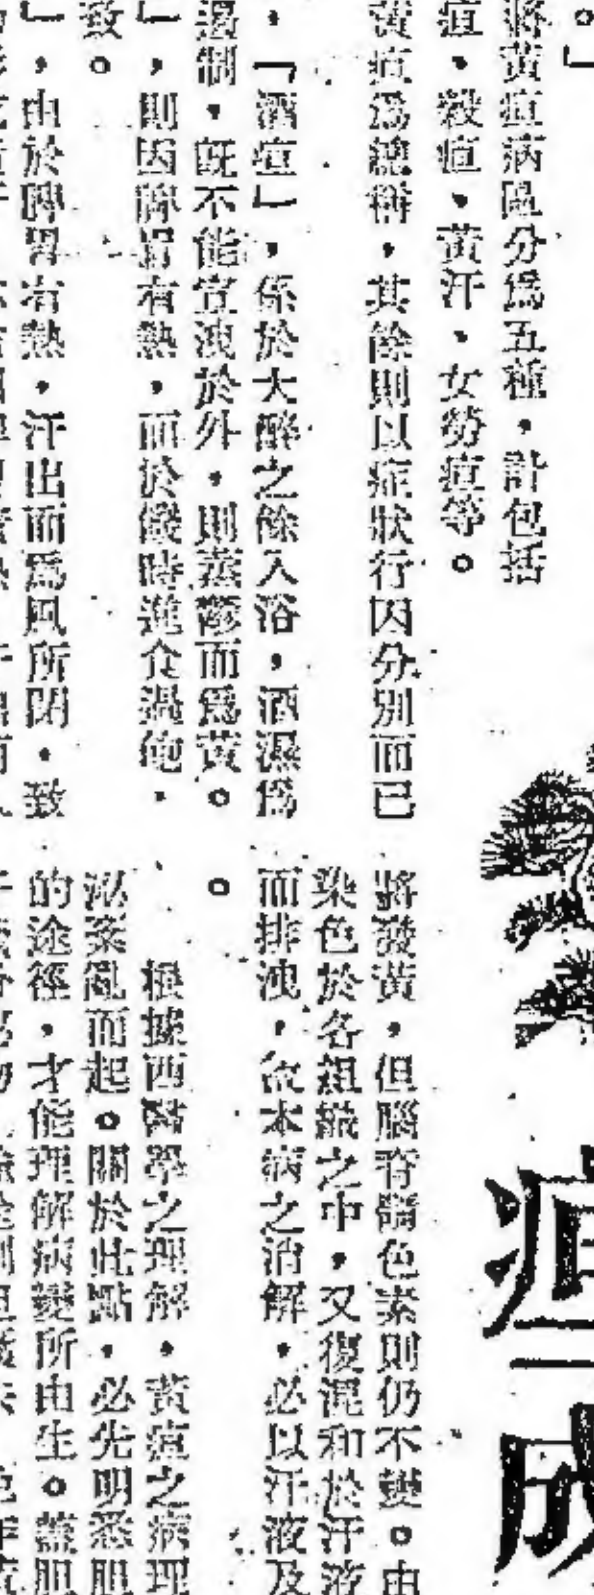 。」
將黃疸病區分爲五種，計包括
疸、穀疸、黃汗、女勞疸等。
黃疸爲總稱，其餘則以症狀行因分別而已
，「酒疸」，係於大醉之餘入浴，酒濕爲
遏制，旣不能宣洩於外，則蒸鬱而爲黃。
」，則因脾胃有熱，而於飢時進食過飽，
致。
」，由於脾胃有熱，汗出而爲風所閉，致
疸
成
將發黃，但腦脊髓色素則仍不變。由
染色於各組織之中，又復混和於汗液
而排洩，依本病之治解，必以汗液及
。
根據西醫學之理解，黃疸之病理
泌紊亂而起。關於此點，必先明悉胆
的途徑，才能理解病變所由生。蓋胆